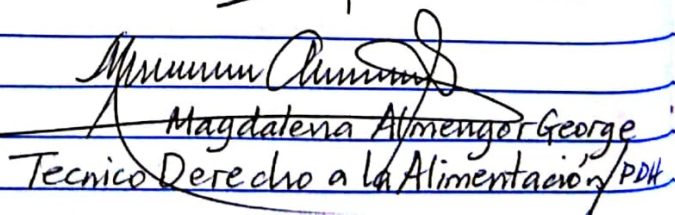 Magdalena Almengor George
Tecnico Derecho a la Alimentación/PDH